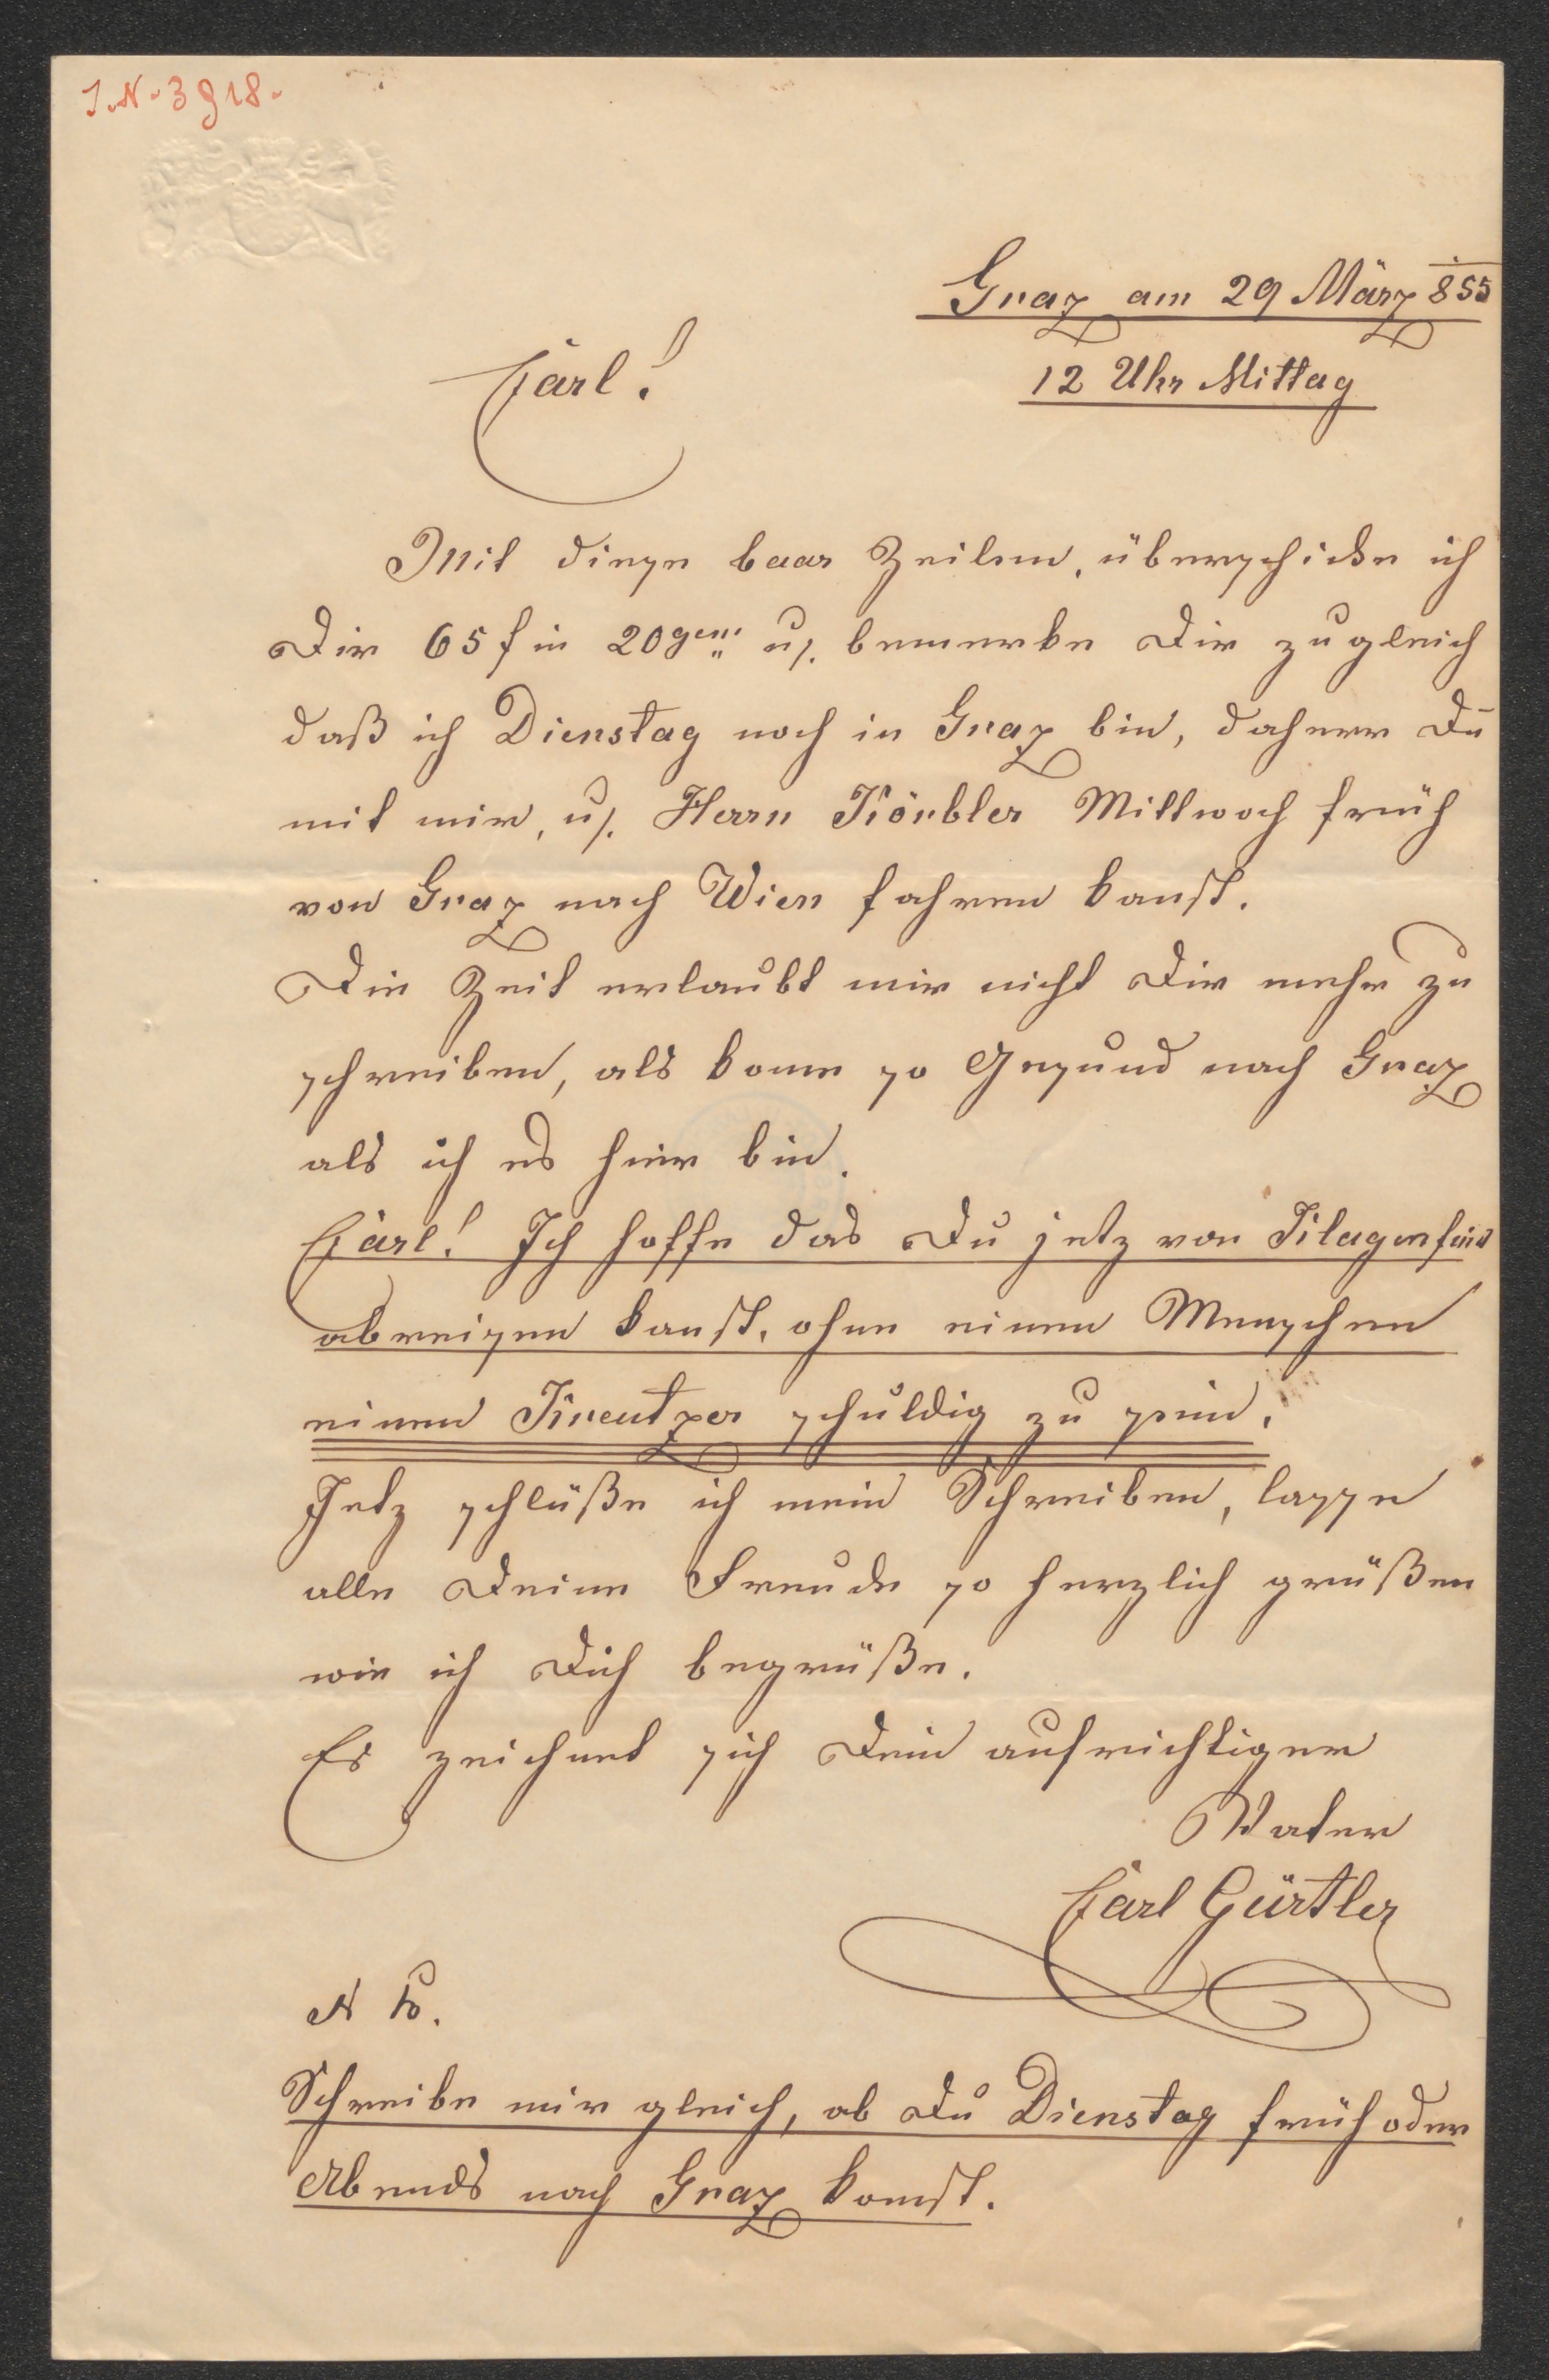 J.N. 3918.
Graz am 29 März 855
12 Uhr Mittag
Carl!
Mit diese baar Zeilen, überschicke ich
Dir 65 f in 20gern u/. bemerke Dir zugleich
daß ich Dienstag noch in Graz bin, daherr Du
mit mir, u/. Herrn Körbler Mittwoch früh
von Graz nach Wien fahren kanst.
Die Zeit erlaubt mir nicht Dir mehr zu
schreiben, als kome so Gesund nach Graz
als ich es hier bin.
Carl! Ich hoffe das Du jetz von Klagenfurt
abreisen kanst, ohne einen Menschen
einen Kreutzer schuldig zu sein.
Jetz schlüße ich mein Schreiben, lasse
alle Deine Freude so herzlich grüßen
wie ich Dich begrüße.
Es zeichnet sich Dein aufrichtiger
Vater
Carl Gürtler
N B.
Schreibe mir gleich, ob Du Dienstag früh oder
Abends nach Graz komst.